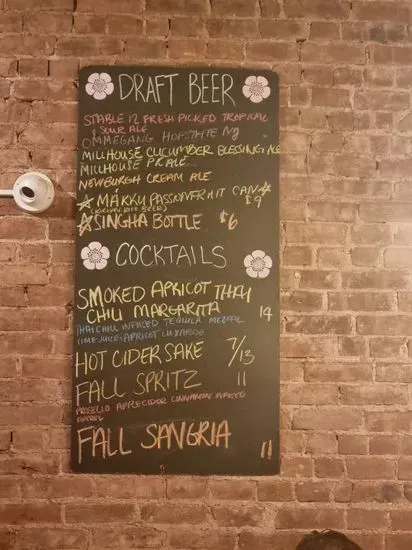 DRAFT BEER
STABLE 12 FRESH PICKED TROPICAL
& SOUR ALE
OMMEGANG HOPSTATE NY
MILLHOUSE CUCUMBER BLESSING ALE
MILLHOUSE PK ALE
NEWBURGH CREAM ALE
MÁKKU PASSIONFRUIT CAN
(KOREAN RICE BEER) $9
SINGHA BOTTLE $6
COCKTAILS
SMOKED APRICOT THAI
CHILI MARGARITA 14
THAI CHILI INFUSED TEQUILA MEZCAL
LIME JUICE, APRICOT
HOT CIDER SAKE 7/13
FALL SPRITZ 11
APPLE CIDER CINNAMON
FALL SANGRIA 11